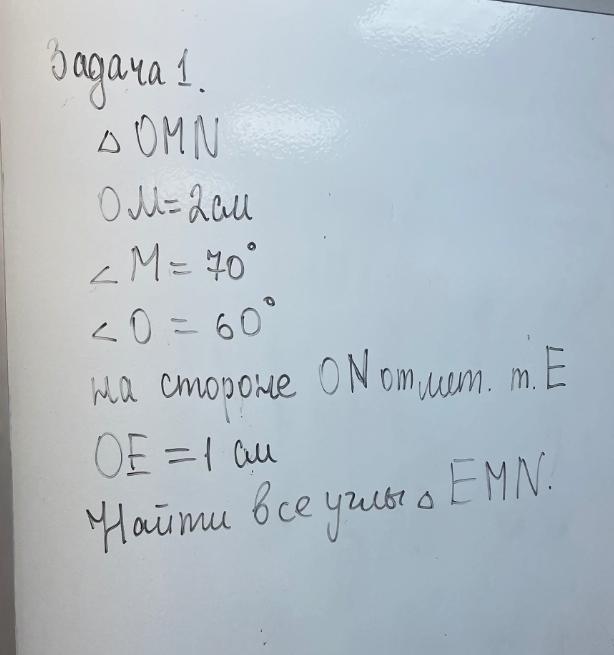 Задача 1.
△ OMN
OM=2см
∠ M = 70°
∠ O = 60°
на стороне ON отмет. т. E
OE = 1 см
Найти все углы △ EMN.